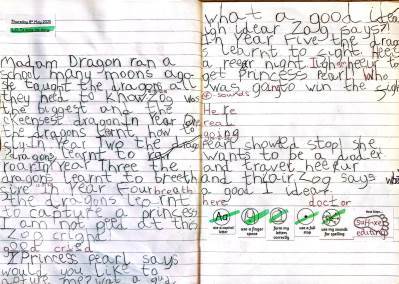 Thursday 8th May 2025
Madam Dragon ran a
school many moons ago
She taught the dragons all
they need to know Zog was
the biggest and the
keenest dragon in Year One
the dragons learnt how to
fly in Year Two the
dragons learnt to roar
roar in Year Three the
dragons learnt to breeth
fire in Year Four breath
the dragons learnt
to capture a princess
I am not good at this
Zog cright
good cried
Princess pearl says
would you like to
capture me? wat a good
what a good idea
Zog says?
in Year Five the dragons
learnt to fight
a night
get Princess Pearl Who
was going to win the fight
sounds
Here
real
going
Pearl showted stop! she
wants to be a
and travel heer
and thair Zog says what
a good I dea?
here doctor
Aa
use a capital letter
use a finger space
form my letters correctly
use a full stop
use my sounds for spelling
Next time...
suffixes
editing